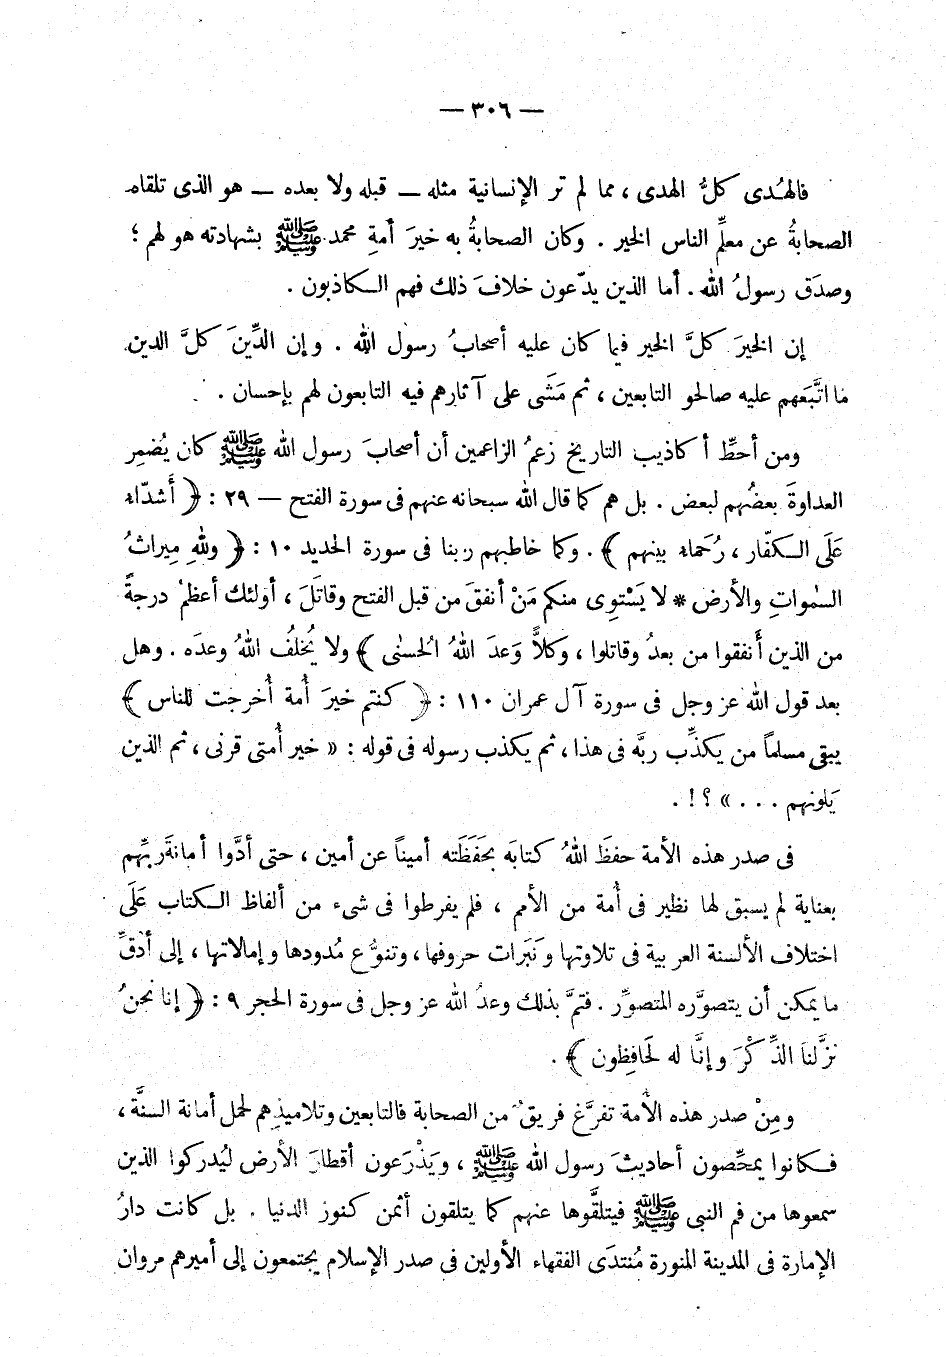 — ٣٠٦ —
فالهُدى كلُّ الهدى ، مما لم تر الإنسانية مثله — قبله ولا بعده — هو الذى تلقاه
الصحابةُ عن معلِّم الناس الخير . وكان الصحابةُ به خيرَ أمةِ محمد ﷺ بشهادته هو لهم ؛
وصدَق رسولُ الله . أما الذين يدّعون خلافَ ذلك فهم الكاذبون .
إن الخيرَ كلَّ الخير فيما كان عليه أصحابُ رسول الله . وإن الدِّينَ كلَّ الدين
ما اتَّبَعهم عليه صالحو التابعين ، ثم مَشَى على آثارهم فيه التابعون لهم بإحسان .
ومن أحطِّ أكاذيب التاريخ زعمُ الزاعمين أن أصحابَ رسول الله ﷺ كان يُضمِر
العداوةَ بعضُهم لبعض . بل هم كما قال الله سبحانه عنهم فى سورة الفتح — ٢٩ : ﴿ أَشدّاء
عَلَى الكفّار ، رُحَماء بينهم ﴾ . وكما خاطبهم ربنا فى سورة الحديد ١٠ : ﴿ وللهِ مِيراثُ
السمٰواتِ والأرض * لا يَسْتوِى منكم مَنْ أنفقَ من قبل الفتح وقاتَلَ ، أولئك أعظمُ درجةً
من الذين أَنفقوا من بعدُ وقاتلوا ، وكلاًّ وَعدَ اللهُ الحُسنٰى ﴾ ولا يُخلفُ اللهُ وعدَه . وهل
بعد قول الله عز وجل فى سورة آل عمران ١١٠ : ﴿ كنتم خيرَ أُمة أُخرجت للناس ﴾
يبقى مسلماً من يكذِّب ربَّه فى هذا ، ثم يكذب رسوله فى قوله : « خير أُمتى قرنى ، ثم الذين
يَلونهم . . . » ؟ ! .
فى صدر هذه الأمة حفظَ اللهُ كتابَه بحَفَظَته أميناً عن أمين ، حتى أدَّوا أمانةَ ربِّهم
بعناية لم يسبق لها نظير فى أُمة من الأمم ، فلم يفرطوا فى شىء من ألفاظ الكتاب عَلَى
اختلاف الألسنة العربية فى تلاوتها ونَبَرات حروفها ، وتنوُّع مُدودها وإمالاتها ، إلى أدقِّ
ما يمكن أن يتصوَّره المتصوِّر . فتمَّ بذلك وعدُ الله عز وجل فى سورة الحجر ٩ : ﴿ إنا نحنُ
نزَّلنا الذِّكْرَ وإنَّا له لَحافِظون ﴾ .
ومِنْ صدر هذه الأمة تفرَّغ فريقٌ من الصحابة فالتابعين وتلاميذِهم لحمل أمانة السنَّة ،
فكانوا يمحِّصون أحاديثَ رسول الله ﷺ ، ويَذْرَعون أقطارَ الأرض ليُدركوا الذين
سمعوها من فم النبى ﷺ فيتلقَّوها عنهم كما يتلقون أثمن كنوز الدنيا . بل كانت دارُ
الإمارة فى المدينة المنورة مُنتدَى الفقهاء الأولين فى صدر الإسلام يجتمعون إلى أميرهم مروان